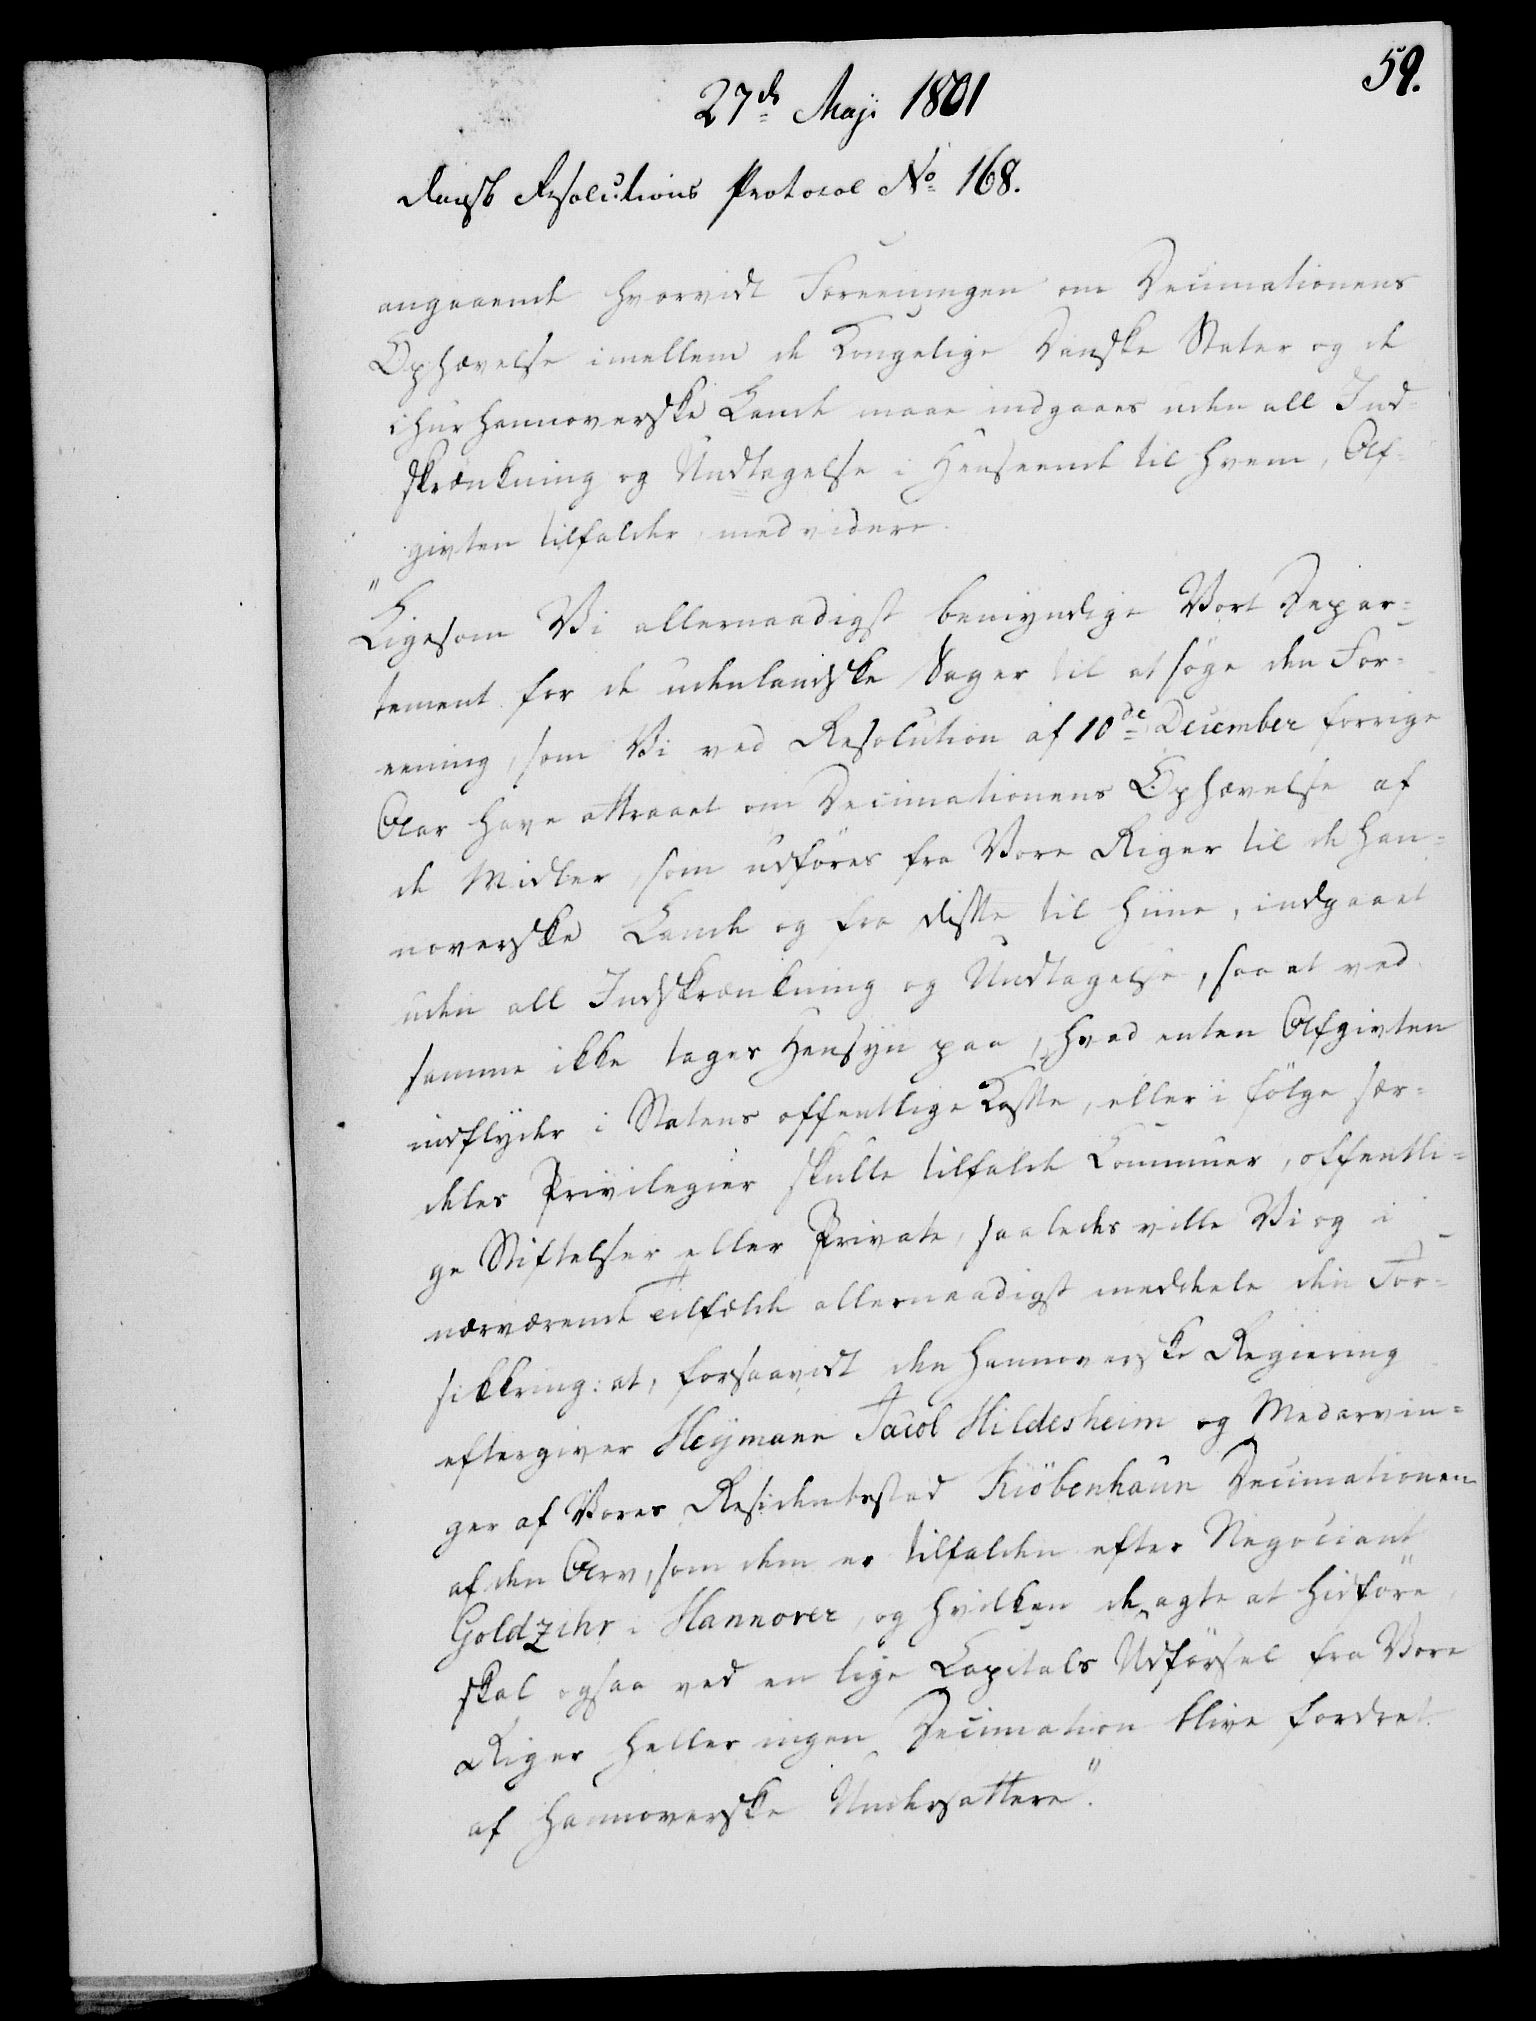 59.
27de Maji 1801
Dansk Resolutions Protocol No 168.
angaaende hvorvidt Foreeningen om Decimationens
Ophævelse imellem de Kongelige Danske Stater og de
Chur hannoverske Lande maae indgaaes uden all Ind-
skrænkning og Undtagelse i Henseende til hvem, Af-
givten tilfalder, med videre.
"Ligesom Vi allernaadigst bemyndige Vort Depar-
tement for de udenlandske Sager til at søge den For-
eening, som Vi ved Resolution af 10de December forrige
Aar have attraaet om Decimationens Ophævelse af
de Midler, som udføres fra Vore Riger til de han-
noverske Lande og fra disse til hiine, indgaaet
uden all Indskrænkning og Undtagelse, saa at ved
samme ikke tages Hensyn paa, hvad enten Afgivten
indflyder i Statens offentlige Kasse, eller i følge sær-
deles Privilegier skulle tilfalde Communer, offentli-
ge Stiftelser eller Private, saaledes ville Vi og i
nærværende Tilfælde allernaadigst meddele den For-
sikkring: at, forsaavidt den hannoverske Regiering
eftergiver Heymann Jacob Hildesheim og Medarvin-
ger af Vores Residentsstad Kiöbenhavn Decimationen
af den Arv, som dem er tilfalden efter Negociant
Goldzihr i Hannover, og hvilken de agte at hidføre,
skal ogsaa ved en lige Capitals Udførsel fra Vore
Riger heller ingen Decimation blive fordret
af hannoverske Undersattere".